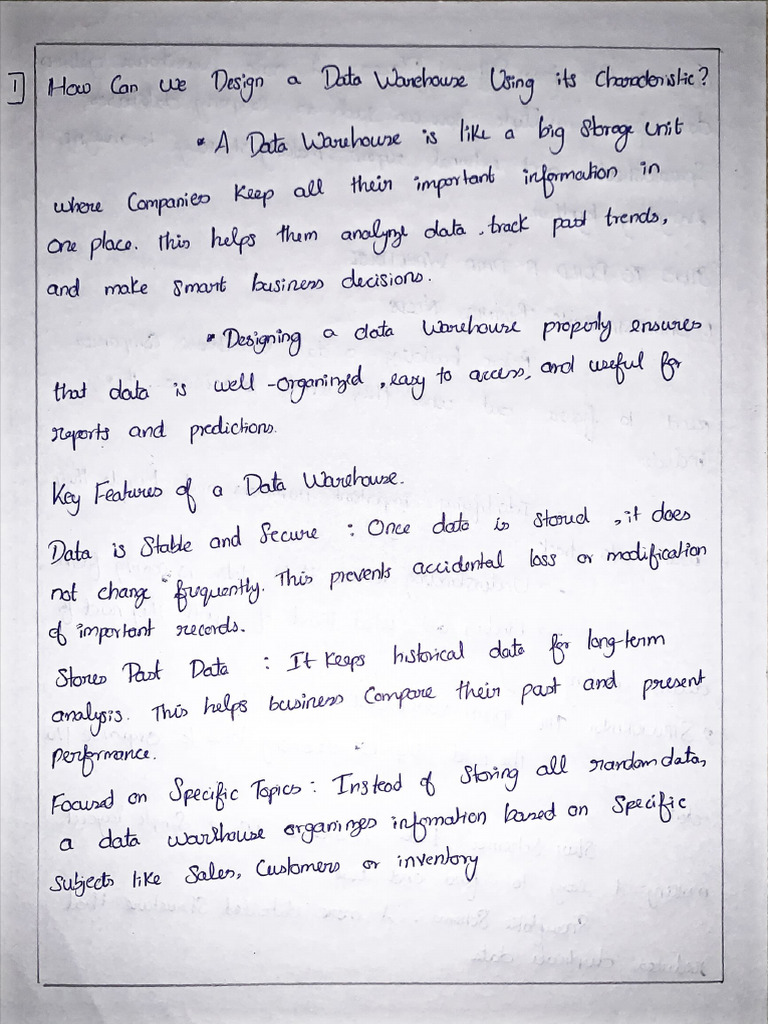 1 How Can we Design a Data Warehouse Using its Characteristic?
* A Data Warehouse is like a big storage unit
where Companies Keep all their important information in
one place. this helps them analyze data, track past trends,
and make smart business decisions.
* Designing a data warehouse properly ensures
that data is well-organized, easy to access, and useful for
reports and predictions.
Key Features of a Data Warehouse.
Data is Stable and Secure : Once data is stored, it does
not change frequently. This prevents accidental loss or modification
of important records.
Stores Past Data : It keeps historical data for long-term
analysis. This helps business Compare their past and present
performance.
Focused on Specific Topics : Instead of storing all random data,
a data warehouse organizes information based on specific
subjects like Sales, Customers or inventory